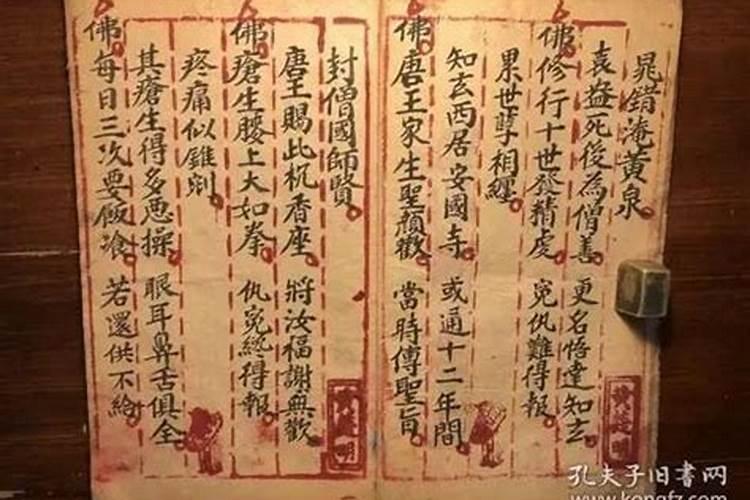 晁錯淹黄泉
袁盎死後為僧善 更名悟達知玄
佛修行十世發精虔 冤仇難得報
累世孽相纏
知玄西居安國寺 或通十二年間
佛唐王家生聖顏歡 當時傳聖旨
封僧國師賢
唐王賜此枕香座 將汝福謝無歡
佛瘡生腰上大如拳 仇冤終得報
疼痛似錐剜
其瘡生得多恶操 眼耳鼻舌俱全
佛每日三次要飯飡 若還供不給
孔夫子旧书网